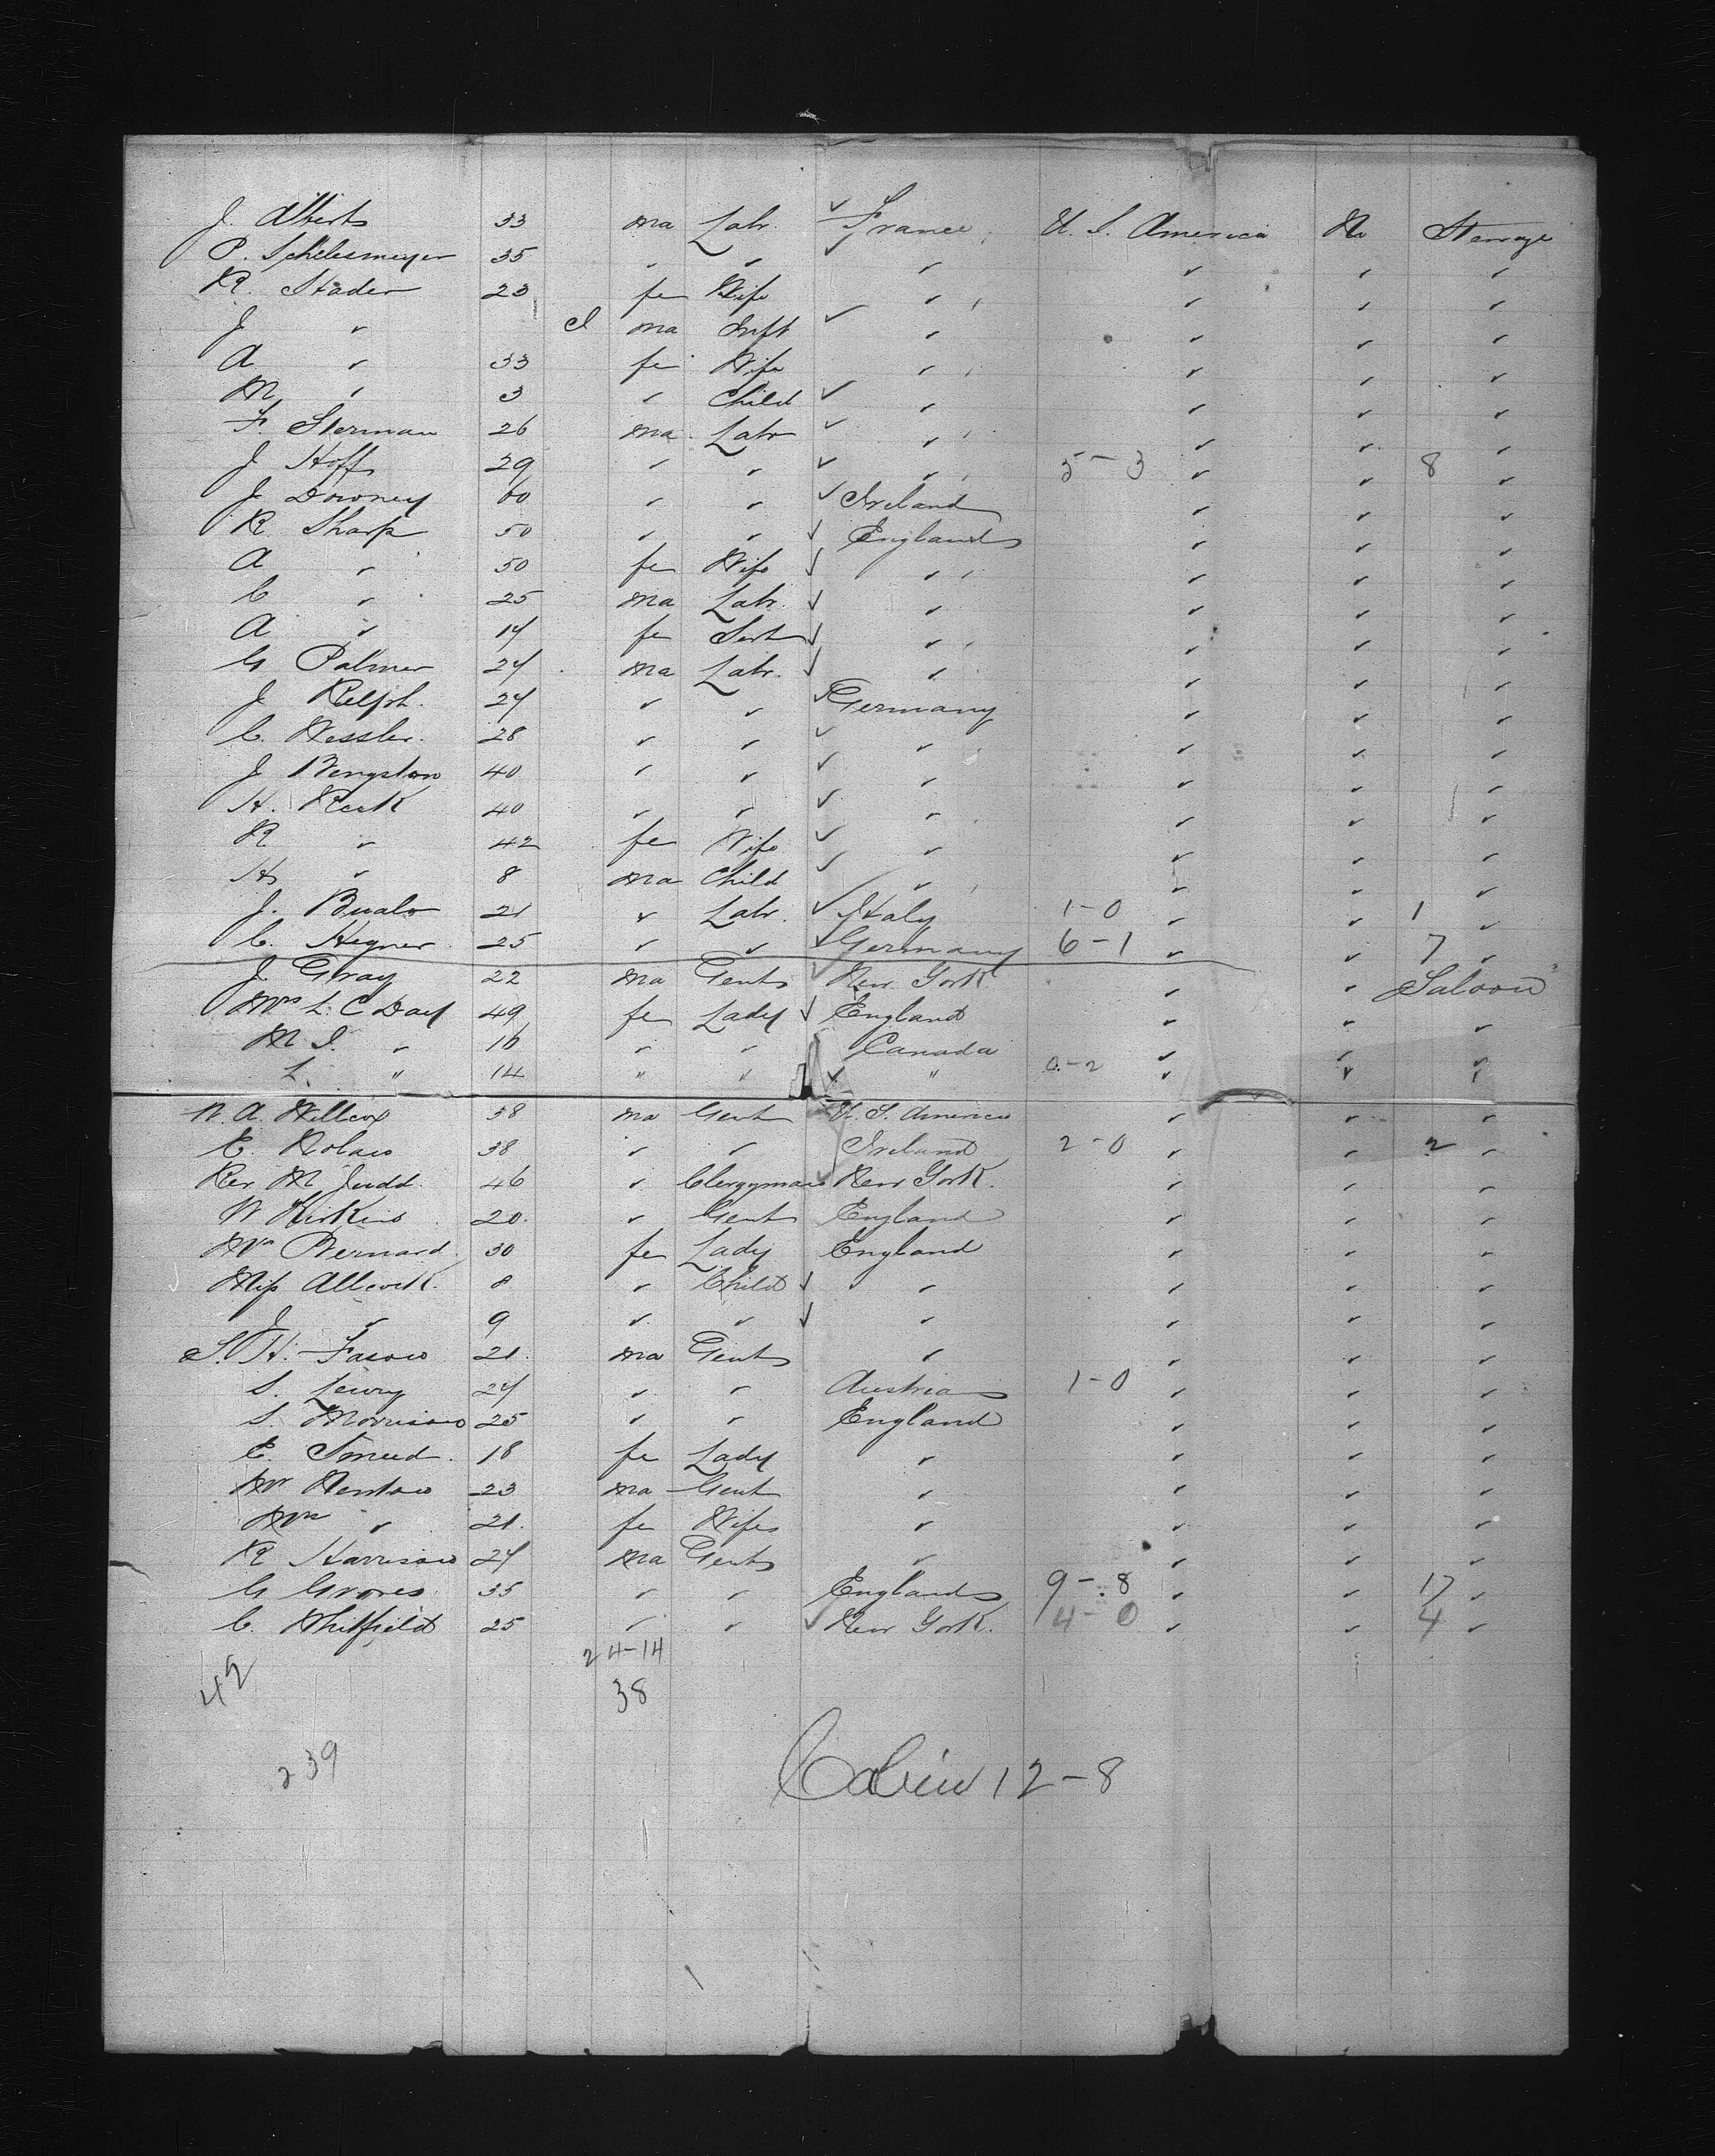 J. Alberts 33 ma Labr. ✓ France U. S. America No Steerage
P. Schelesmeyer 35 " " ✓ " " " "
R. Stader 23 fe Wife " " " "
J " I ma Inft ✓ " " " "
A " 33 fe Wife " " " "
M " 3 " Child ✓ " " " "
F. Sterman 26 ma Labr ✓ " " " "
J Hoff 29 " " ✓ " 5-3 " " 8 "
J Downey 60 " " ✓ Ireland " " "
R Sharp 50 " " ✓ England " " "
A " 50 fe Wife ✓ " " " "
C " 25 ma Labr. ✓ " " " "
A " 14 fe Sert ✓ " " " "
G Palmer 24 ma Labr. ✓ " " " "
J Relph. 24 " " ✓ Germany " " "
C. Wessler. 28 " " ✓ " " " "
J Bengston 40 " " ✓ " " " "
H. Reck 40 " " ✓ " " " "
R " 42 fe Wife ✓ " " " "
H " 8 ma Child ✓ " " " "
J. Bualo 21 " Labr. ✓ Italy 1-0 " " 1 "
C. Hegner 25 " " ✓ Germany 6-1 " " 7 "
J Gray 22 ma Gent ✓ New York " " Saloon
Mrs L. C Day 49 fe Lady ✓ England " " "
M I. " 16 " " Canada " " "
L. " 14 " " ✓ " 0-2 " " "
W. A. Willcox 38 ma Gent U. S. America " " "
E. Nolan 38 " " Ireland 2-0 " " 2 "
Rev M Judd. 46 " Clergyman ✓ New York. " " "
W Hirkins 20. " Gent England " " "
Mrs Bernard. 30 fe Lady England " " "
Miss Allcock. 8 " Child ✓ " " " "
J " 9 " " ✓ " " " "
S. H. Fason 21. ma Gent " " " "
S. Lewry 24 " " Austria 1-0 " " "
S. Morrison 25 " " England " " "
E. Smeed. 18 fe Lady " " " "
Mr Henton 23 ma Gent " " " "
Mrs " 21. fe Wife " " " "
R Harrison 24 ma Gent " " " "
G Groves 35 " " England 9-8 " " 17 "
C. Whitfield 25 " " ✓ New York. 4-0 " " 4 "
24-14
42 38
239 Cabin 12-8